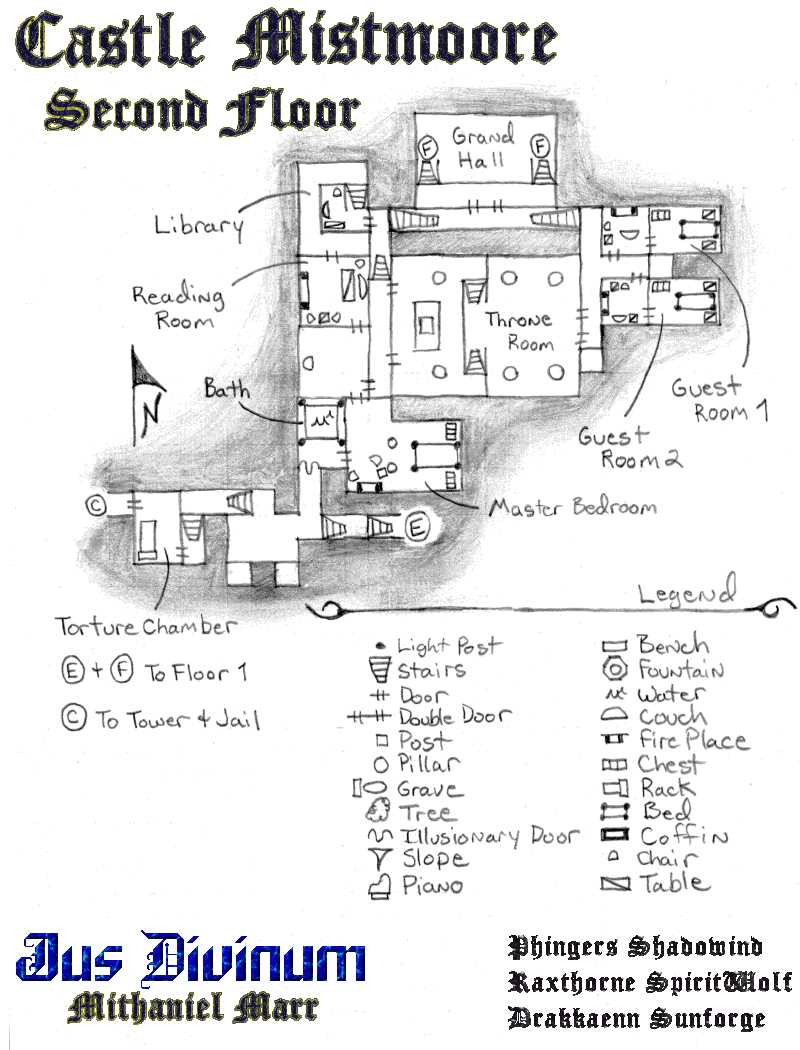 Castle Mistmoore
Second Floor
Grand
Hall
F
F
Library
Reading
Room
Throne
Room
Bath
N
Guest
Room 1
Guest
Room 2
Master Bedroom
C
E
Torture Chamber
E + F To Floor 1
C To Tower & Jail
Legend
Light Post
Stairs
Door
Double Door
Post
Pillar
Grave
Tree
Illusionary Door
Slope
Piano
Bench
Fountain
Water
Couch
Fire Place
Chest
Rack
Bed
Coffin
Chair
Table
Jus Divinum
Mithaniel Marr
Phingers Shadowind
Raxthorne SpiritWolf
Drakkaenn Sunforge